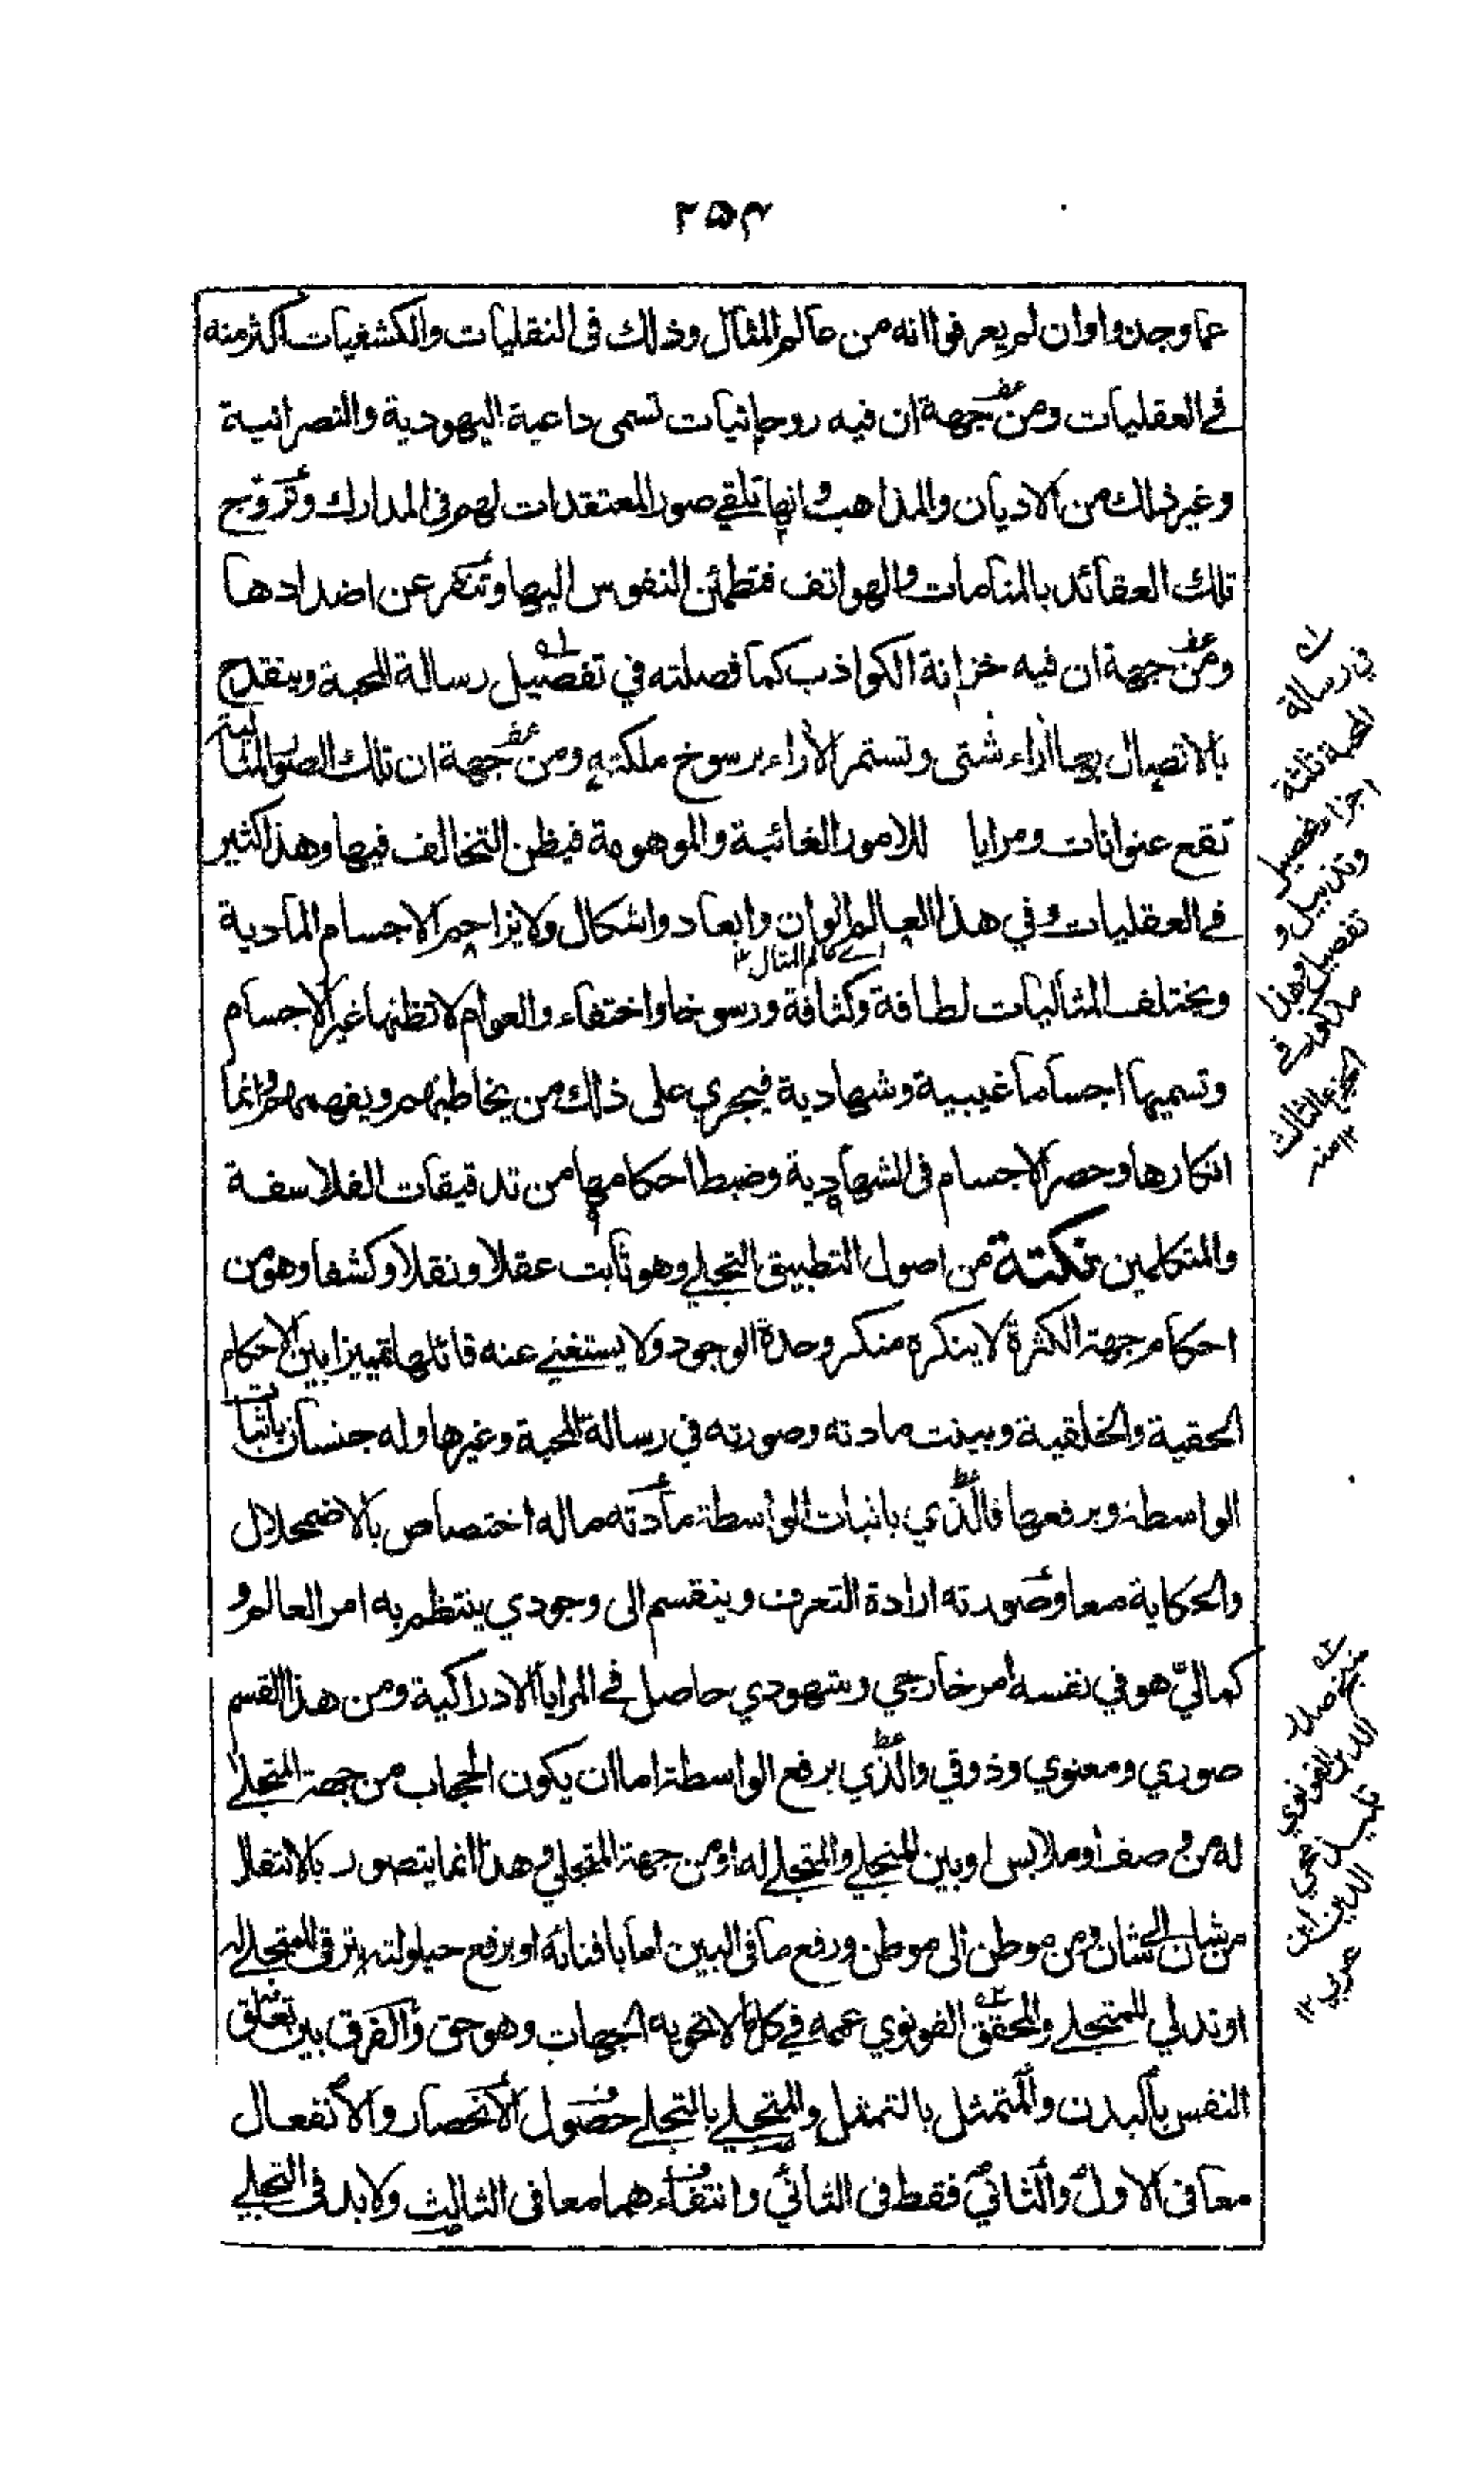 ٢٥٣
عما وجدوا وان لم يعرفوا انه من عالم المثال وذلك فى النقليات والكشفيات اكثر منه
فى العقليات ومن جهة ان فيه روحانيات تسمى داعية اليهودية والنصرانية
وغير ذلك من الاديان والمذاهب وانها تلقي صور المعتقدات لهم فى المدارك وتروج
تلك العقائد بالمنامات والهواتف فتطمئن النفوس اليها وتنكر عن اضدادها
ومن جهة ان فيه خزانة الكواذب كما فصلته في تفصيل رسالة المحبة وينقدح
بالاتصال بها اراء شتى وتستمر الاراء برسوخ ملكته ومن جهة ان تلك الصور المثالية
تقع عنوانات ومرايا للامور الغائبة والموهومة فيظن التخالف فيها وهذا كثير
فى العقليات وفي هذا العالم الوان وابعاد واشكال ولا يزاحم الاجسام المادية
اے عالم المثال ١٢
ويختلف المثاليات لطافة وكثافة ورسوخا واختفاء والعوام لا تظنها غير الاجسام
وتسميها اجساما غيبية وشهادية فيجري على ذلك من يخاطبهم ويفهمهم وانما
انكارها وحصر الاجسام فى الشهادية وضبط احكامها من تدقيقات الفلاسفة
والمتكلمين نكتة من اصول التطبيق التجلي وهو ثابت عقلا ونقلا وكشفا وهو من
احكام جهة الكثرة لا ينكره منكر وحدة الوجود ولا يستغني عنه قائلها تمييزا بين الاحكام
الحقية والخلقية وبينت مادته وصورته في رسالة المحبة وغيرها وله جنسان باثبات
الواسطة وبرفعها فالذي باثبات الواسطة مادته ماله اختصاص بالاضمحلال
والحكاية معا وصورته ارادة التعرف وينقسم الى وجودي ينتظم به امر العالم و
كماليّ هو في نفسه امر خارجي وشهودي حاصل في المرايا الادراكية ومن هذا القسم
صوري ومعنوي وذوقي والذي برفع الواسطة اما ان يكون الحجاب من جهة المتجلى
له من وصف او ملابس او بين المتجلي والمتجلى له او من جهة المتجلي وهذا انما يتصور بالانتقال
من شان الى شان ومن موطن الى موطن ورفع ما فى البين اما بافنائه او برفع حيلولته بترقى المتجلى له
او تدلي المتجلي والمحقق القونوي عمه في كل ما لا تحويه الجهات وهو حق والفرق بين تعلق
النفس بالبدن والمتمثل بالتمثل والمتجلي بالتجلي حصول الانحصار والانفعال
معا فى الاول والثاني فقط فى الثاني وانتفاء هما معا فى الثالث ولا بد فى التجلي
له في رسالة
المحبة ثلثة
اجزاء تحصيل
وتذييل و
تفصيل وهذا
مذكور في
الجزء الثالث
١٢ منه
شيخ صدر
الدين القونوي
تلميذ محي
الدين ابن
عربي ١٢